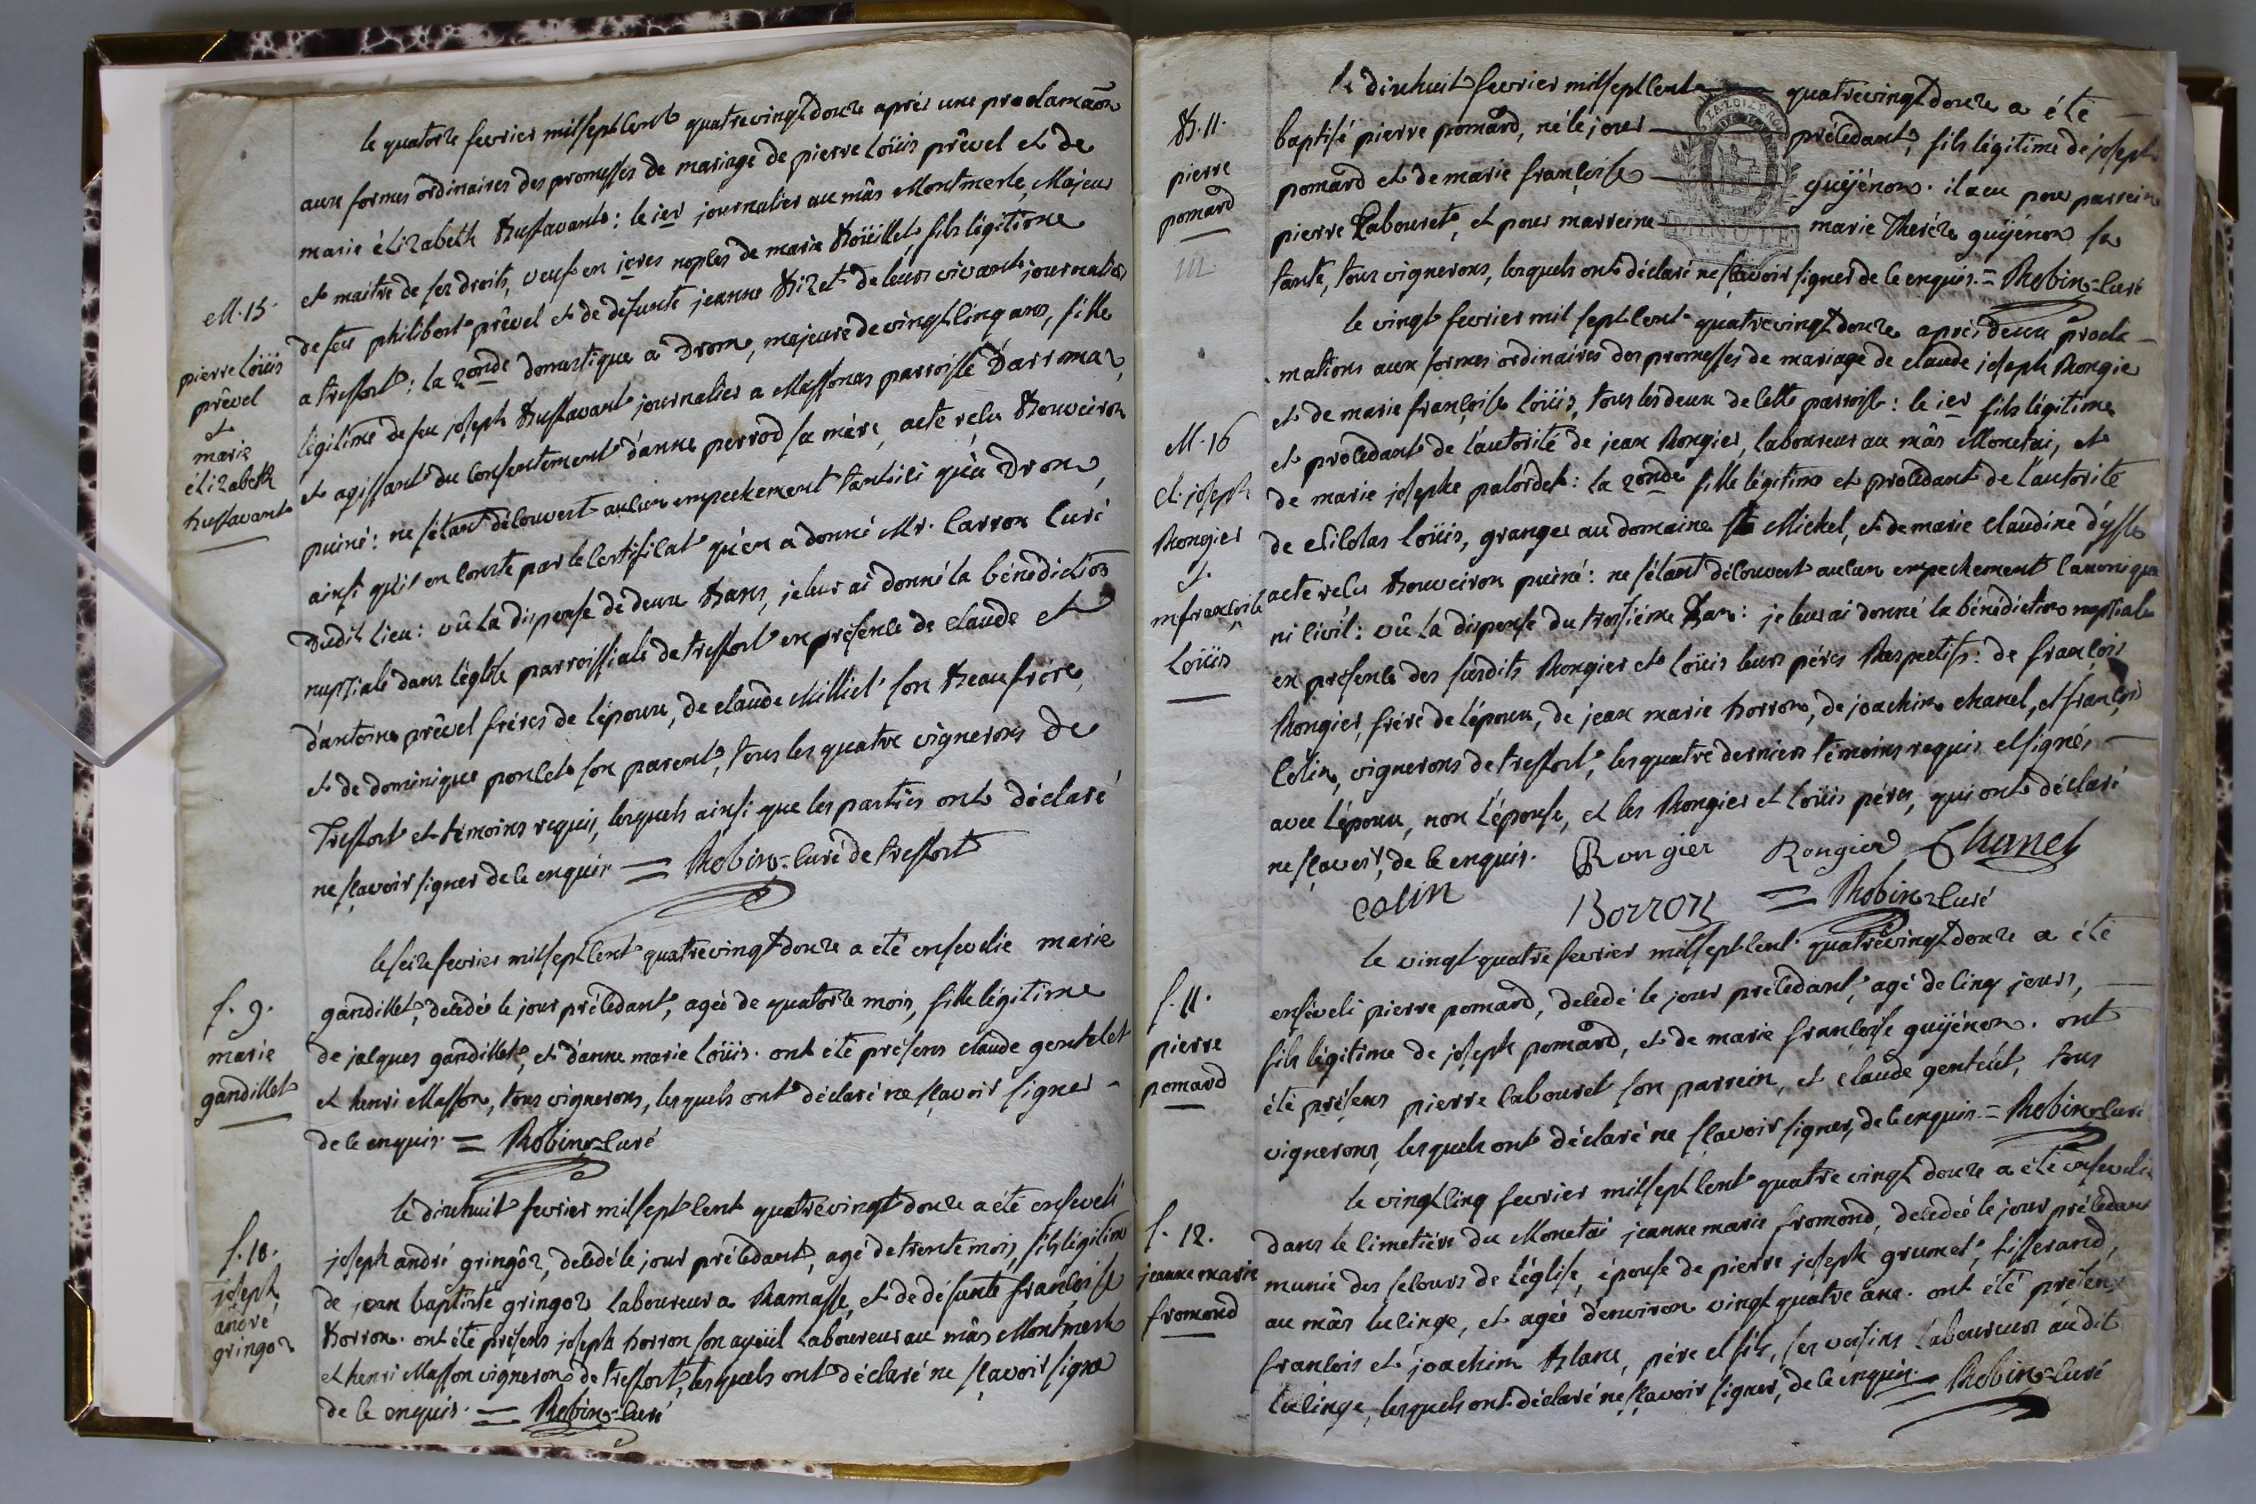 le quatorze fevrier mil sept cent quatre vingt douze après une proclamaõn
aux formes ordinaires des promesses de mariage de pierre loüis prêvel et de
marie élizabeth : le ier journalier au mâs Montmerle, Majeur
et maitre de ses droits, veuf en ieres noples de marie fils légitime
de feu philibert prêvel et de défunte jeanne de leurs vivants journaliers
a tressort : la 2onde domestique a Drom, majeure de vingt cinq ans, fille
légitime de feu joseph journalier a Massonas parroisse
et agissant du consentement d'anne perrod sa mère, acte relu Bouveiron
puiné : ne s'étant découvert aucun empechement tant ici qu'à Drom,
ainsi qu'il en conste par le certificat qu'en a donné Mr. Carron Curé
Dudit lieu : vû la dispense de deux Bans, je leur ai donné la bénédiction
nuptiale dans l'église parroissiale de tressort en présence de claude et
d'antoine prêvel frères de l'époux, de claude Milliet son Beaufrère,
et de dominique poncet son parent, tous les quatre vignerons de
Tressort et témoins requis, lesquels ainsi que les parties ont déclaré
ne sçavoir signer de ce enquis = Robin curé de tressort
M. 15.
pierre loüis
prêvel
et
marie
élizabeth
le seize fevrier mil sept cent quatre vingt douze a été ensevelie marie
gandillet, décédée le jour précédant, agée de quatorze mois, fille légitime
de jacques gandillet, et d'anne marie loüis. ont été présens claude gentelet
et henri Masson, tous vignerons, lesquels ont déclaré ne sçavoir signer
de ce enquis = Robin curé
f. 9.
marie
gandillet
le dixhuit fevrier mil sept cent quatre vingt douze a été enseveli
joseph andré gringôz, décédé le jour précédant, agé de trente mois, fils légitime
de jean baptiste gringoz laboureur a Ramasse, et de défunte françoise
Borron. ont été présens joseph borron son ayeüil Laboureur au mâs Montmerle
et henri Masson vigneron de tressort, lesquels ont déclaré ne sçavoir signer
de ce enquis. = Robin curé
f. 10.
joseph
andré
gringoz
le dixhuit fevrier mil sept cent quatre vingt douze a été
baptisé pierre pomard, né le jour précédant, fils légitime de joseph
pomard et de marie françoise guÿénon. il a eu pour parrein
pierre Labouret, et pour marreine marie Thérèze guÿénon sa
tante, tous vignerons, lesquels ont déclaré ne sçavoir signer de ce enquis. = Robin curé
MINUTE
B. 11.
pierre
pomard
le vingt fevrier mil sept cent quatre vingt douze après deux procla-
mations aux formes ordinaires des promesses de mariage de claude joseph Rongier
et de marie françoise loüis, tous les deux de cette parroisse : le ier fils légitime
et procédant de l'autorité de jean Rongier, laboureur au mâs Monetai, et
de marie josephe palordet : la 2onde fille légitime et procédant de l'autorité
de Nicolas loüis, granger au domaine St Michel, et de marie claudine
acte relu Bouveiron puiné : ne s'étant découvert aucun empechement canonique
ni civil : vû la dispense du troisième Ban : je leur ai donné la bénédiction nuptiale
en présence des susdits Rongier et loüis leurs pères Respectifs : de françois
Rongier, frère de l'époux, de jean marie borron, de joachim chanel, et françois
Colin, vignerons de tressort, les quatre derniers témoins requis et signés
avec l'époux, non l'épouse, et les Rongier et loüis pères, qui ont déclaré
ne sçavoir, de ce enquis. Rongier Rongier Chanel
colin Borron = Robin curé
M. 16
Cl. joseph
Rongier
et
m françoise
loüis
le vingt quatre fevrier mil sept cent quatre vingt douze a été
enséveli pierre pomard, décédé le jour précédant, agé de cinq jours,
fils légitime de joseph pomard, et de marie françoise guÿénon. ont
été présens pierre labouret son parrein, et claude gentelet, tous
vignerons, lesquels ont déclaré ne sçavoir signer, de ce enquis = Robin curé
f. 11.
pierre
pomard
le vingt cinq fevrier mil sept cent quatre vingt douze a été ensevelie
dans le cimetière du Monetai jeanne marie fromond, décédée le jour précédant
munie des secours de l'église, épouse de pierre joseph grumet, tisserand,
au mâs lucinge, et agée d'environ vingt quatre ans. ont été présens
françois et joachim Blanc, père et fils, ses voisins laboureurs audit
lucinge, lesquels ont déclaré ne sçavoir signer, de ce enquis. = Robin curé
f. 12.
jeanne marie
fromond